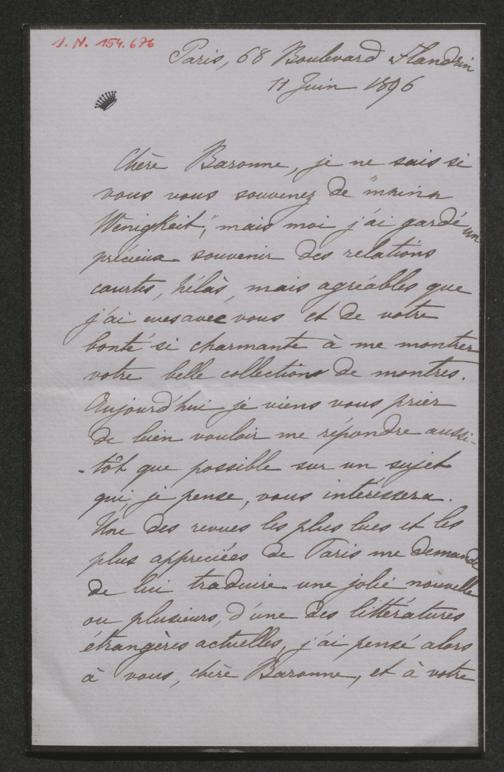 I. N. 154.676
Paris, 68 Boulevard Flandrin
11 Juin 1896
Chère Baronne, je ne sais si
vous vous souvenez de "meina
Wenigkeit", mais moi j'ai gardé un
précieux souvenir des relations
courtes, hélàs, mais agréables que
j'ai eues avec vous et de votre
bonté si charmante à me montrer
votre belle collection de montres.
Aujourd'hui je viens vous prier
de bien vouloir me répondre aussi-
-tôt que possible sur un sujet
qui, je pense, vous intéressera.
Une des revues les plus lues et les
plus appreciées de Paris me demande
de lui traduire une jolie nouvelle
ou plusieurs, d'une des littératures
étrangères actuelles, j'ai pensé alors
à vous, chère Baronne, et à votre